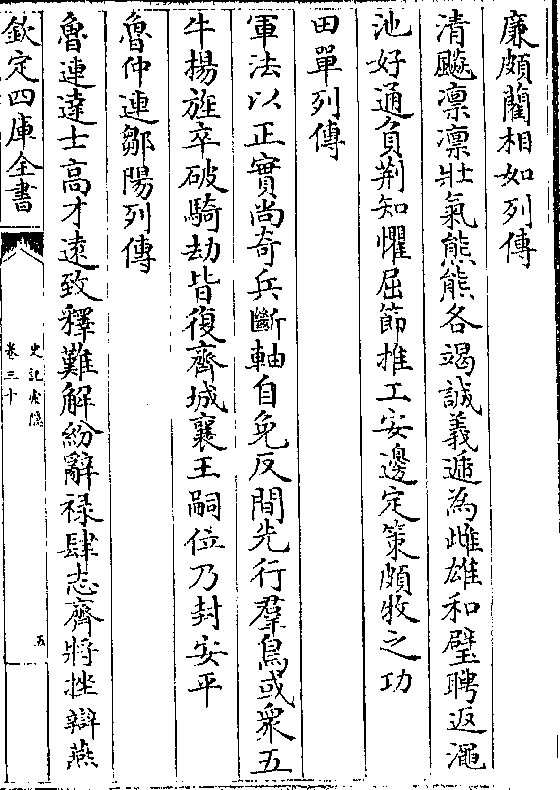 廉頗藺相如列傳
清飈凛凛壯氣熊熊各竭誠義遞為雌雄和璧聘返澠
池好通負荆知懼屈節推工安邊定策頗牧之功
田單列傳
軍法以正實尚奇兵斷軸自免反間先行羣鳥或衆五
牛揚旌卒破騎劫皆復齊城襄王嗣位乃封安平
魯仲連鄒陽列傳
魯連達士高才逺致釋難解紛辭禄肆志齊將挫辯燕
欽定四庫全書
史記索隠
卷三十
五